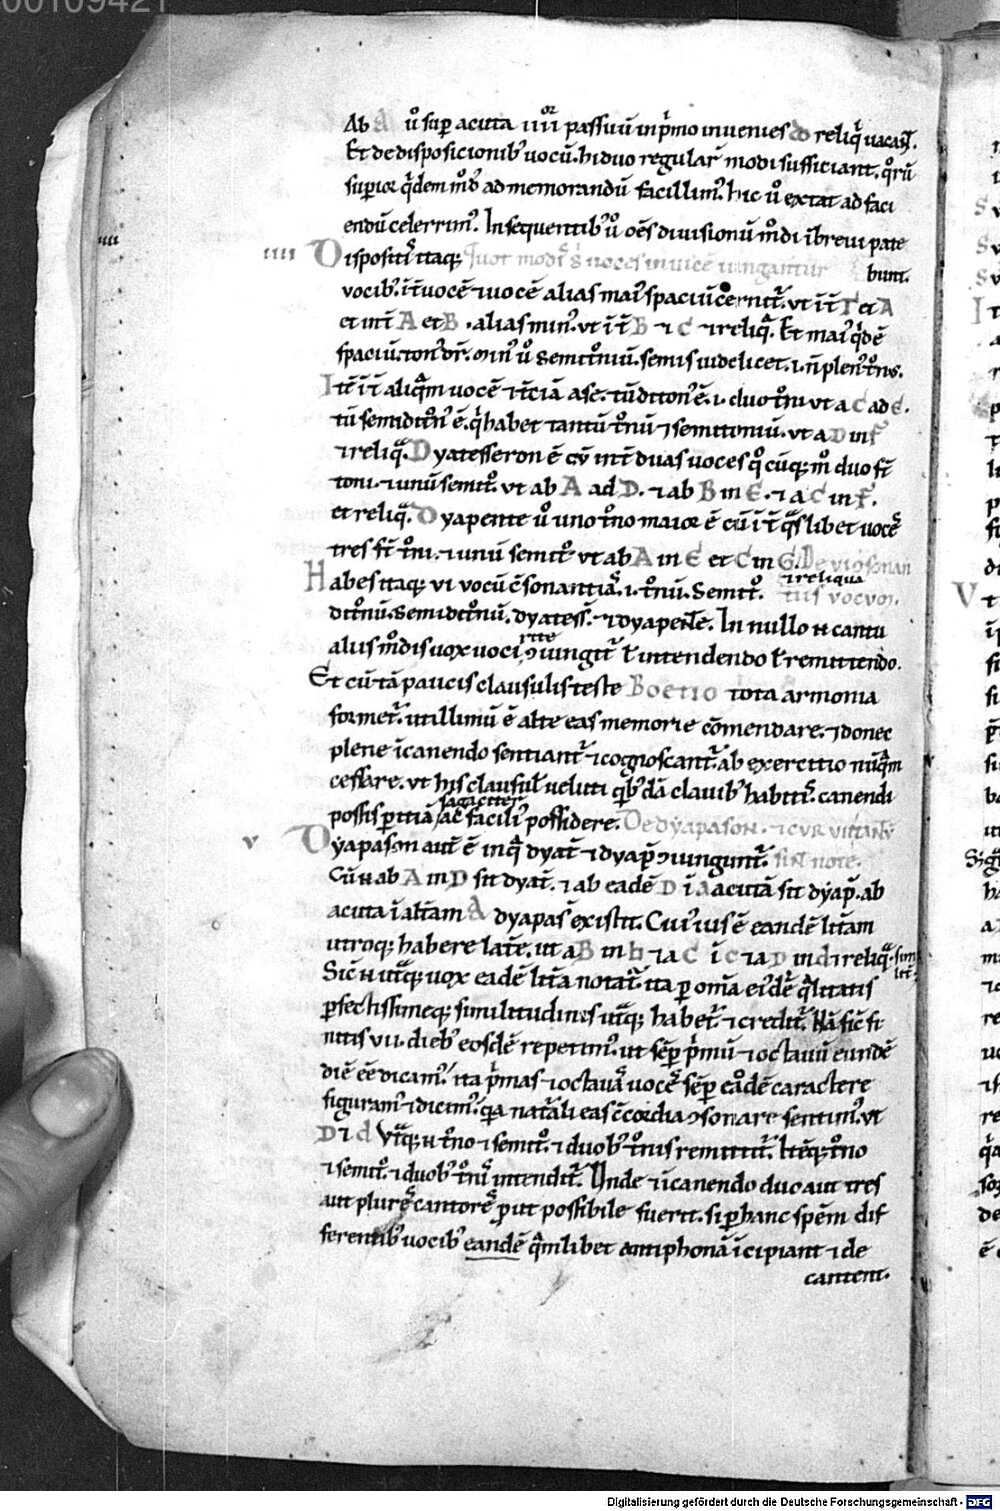 00109421
Ab A u͛o sup̱ acuta iiii^or passuū in p̱mo inuenies ab reliq̄ uacant.
Et de disposicionib; uocū. hi duo regulaɍ modi sufficiant. q̊rū
superior q̇dem m̊ds ad memorandū facillim᷒. hic u̇ extat ad faci
endū celerrim᷒. In sequentib; u̇ oēs diuisionū m̊di ībreui pate
bunt.
iiii
iiii
Disposit᷒ itaq; Quot modis s uoces inuicē iungantur
uocib᷒. īt uocē ⁊ uocē alias mai᷒ spaciū cernit᷒. ut īt Γ et A
et int A et B. alias min᷒. ut īt B ⁊ C ⁊ reliq̄. Et mai᷒ q̇dē
spaciū. ton᷒ dr̄. min᷒ u̇ semit̊niū. semis uidelicet. i. n̄ plen᷒ t̊n᷒.
Itē īt aliq̄m uocē ⁊ t̄ciā asc. tū diton᷒ ē. i. duo t̊ni ut a C ad E.
tū semidit̊n᷒ ē. q̇ habet tantū t̊nū ⁊ semitoniū. ut a D in F
⁊ reliq̄. Dyatesseron ē cū int duas uoces q̊cūq; m̊ duo s̄t
toni. ⁊ unū semit̊. ut ab A ad D. ⁊ ab B in E. ⁊ a C in F.
et reliq̄. Dyapente u̇ uno t̊no maior ē cū īt q̄slibet uocēs
tres s̄t t̊ni. ⁊ unū semit̊ ut ab A in E et C in G. De vi c̄sonan
⁊ reliqua
Habes itaq; vi uocū c̄sonantiās. i. t̊nū. Semit̊. tiis vocum.
dit̊nū. Semidit̊nū. dyatess̄. ⁊ dyapente. In nullo n̄ cantu
rite
aliis m̊dis uox uoci ꝯiungit᷒ ł intendendo ł remittendo.
Et cū tā paucis clausulis teste Boetio tota armonia
formet᷒. utillimū ē alte eas memorie cōmendare. ⁊ donec
plene īcanendo sentiant᷒ ⁊ cognoscant᷒. ab exercitio nūq̄m
cessare. ut his clausuł ueluti q̇b᷒dā clauib᷒ habitis. canendi
sagaciter
possis ꝑitiā ac facili᷒ possidere. De dyapason. ⁊ cur uii tantū
v
Dyapason aut̄ ē in q̄ dyat̄ ⁊ dyap̄ ꝯiungunt᷒. sint note.
Cū n̄ ab A in D sit dyat̄. ⁊ ab eadē D ī a acutā sit dyap̄. ab
acuta ī alt̄am A dyapas᷒ existit. Cui᷒ uis ē eandē litt̄am
utroq; habere lat̄e. ut a B in b ⁊ a C ī c ⁊ a D in d ⁊ reliq̄. simi
lit̄.
Sic̄ n̄ ut̄q; uox eadē litt̄a notat᷒. ita ꝑ om̄a ei᷒dē q̄litatis
ꝑfectissimeq; similitudinis ut̄q; habet᷒ ⁊ credit᷒. Nā sic̄ fi
nitis vii. dieb᷒ eosdē repetim᷒. ut sēp p̱mū ⁊ octauū eundē
diē eē dicam᷒. ita p̱mas ⁊ octauās uocēs sēp eādē caractere
figuram᷒ ⁊ dicim᷒. q̇a nat̄ali eas c̄cordia ꝯsonare sentim᷒. ut
D ⁊ d. Ut̄q; n̄ t̊no ⁊ semit̊. ⁊ duob᷒ t̊nis remittit᷒. Itēq; t̊no
⁊ semit̊. ⁊ duob᷒ t̊nis intendit᷒. Unde ⁊ īcanendo duo aut tres
aut plures cantores ꝓut possibile fuerit. si ꝑ hanc spēm dif
ferentib᷒ uocib᷒ eandē q̄mlibet antiphonā īcipiant ⁊ de
cantent.
Digitalisierung gefördert durch die Deutsche Forschungsgemeinschaft - DFG